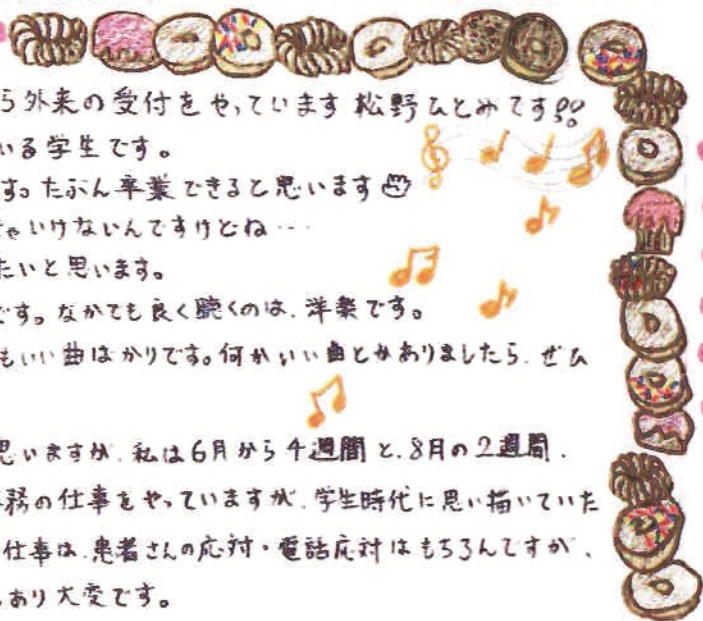 ら外来の受付をやっています松野ひとみです!!
いる学生です。
す。たぶん卒業できると思います
ゃいけないんですけどね…
たいと思います。
です。なかでも良く聴くのは、洋楽です。
もいい曲ばかりです。何かいい曲とかありましたら、ぜひ
思いますが、私は6月から4週間と、8月の2週間、
務の仕事をやっていますが、学生時代に思い描いていた
仕事は、患者さんの応対・電話応対はもちろんですが、
あり大変です。